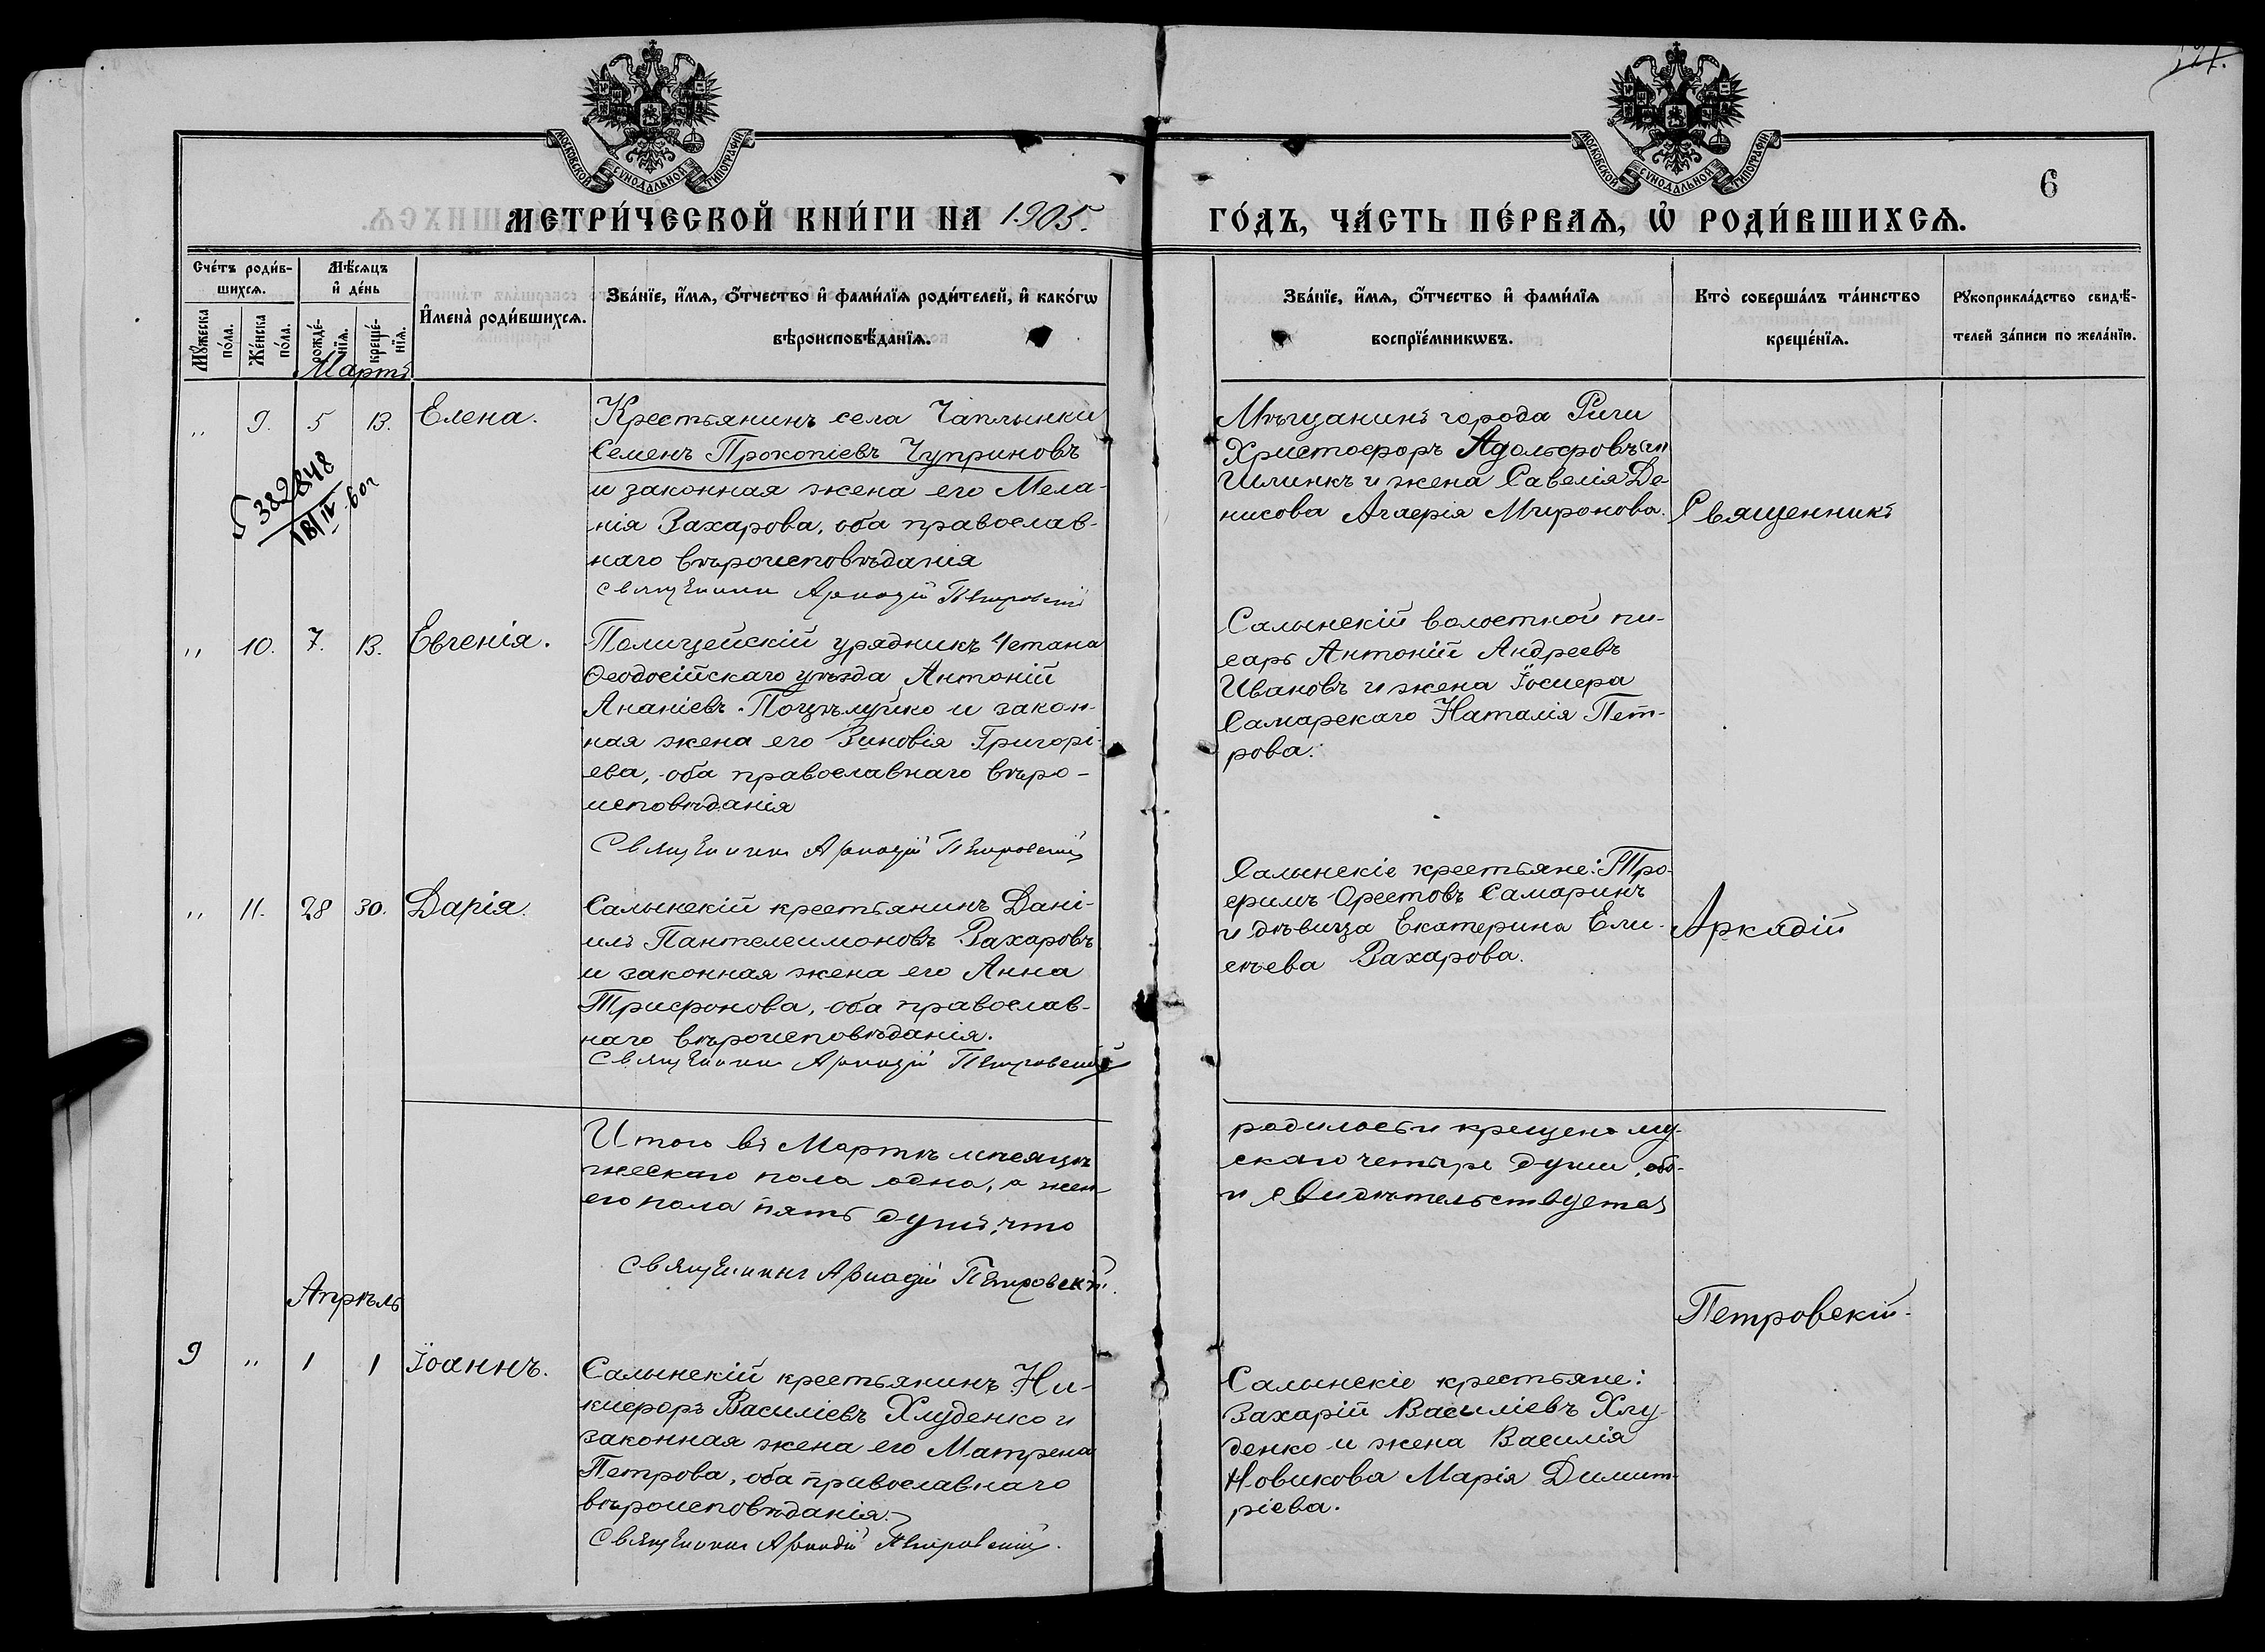 124.
МОСКОВСКОЙ СѴНОДАЛЬНОЙ ТИПОГРАФІИ
МОСКОВСКОЙ СѴНОДАЛЬНОЙ ТИПОГРАФІИ
6
МЕТРИ́ЧЕСКОЙ КНИ́ГИ НА 1905.
ГО́ДЪ, ЧА́СТЬ ПЕ́РВАѦ, Ѡ҆ РОДИ́ВШИХСѦ.
Сче́тъ роди́в-
шихсѧ.
Мꙋ́жеска по́ла.
Же́нска по́ла.
Мѣ́сѧцъ
и҆ де́нь
рожде́-нїѧ.
креще́-нїѧ.
И҆мена̀ роди́вшихсѧ.
Зва́нїе, и҆́мѧ, ѻ҆́тчество и҆ фами́лїѧ роди́телей, и҆ како́гѡ
вѣроисповѣ́данїѧ.
Зва́нїе, и҆́мѧ, ѻ҆́тчество и҆ фами́лїѧ
воспрїе́мникѡвъ.
Кто̀ соверша́лъ та́инство
креще́нїѧ.
Рꙋкоприкла́дство свидѣ́-
телей за́писи по жела́нїю.
Мартъ
" 9. 5 13. Елена.
Крестьянинъ села Чаплынки
Семенъ Прокопіевъ Чуприновъ
и законная жена его Мела-
нія Захарова, оба православ-
наго вѣроисповѣданія
Священникъ Аркадій Петровскій
382848
18/IV 60г
Мѣщанинъ города Риги
Христофоръ Адольфовъ
Шлинкъ и жена Савелія Де-
нисова Агаерія Миронова.
Священникъ
" 10. 7. 13. Евгенія.
Полицейскій урядникъ 4 стана
Ѳеодосійскаго уѣзда Антоній
Ананіевъ Поцѣлуйко и закон-
ная жена его Зиновія Григорі-
ева, оба православнаго вѣро-
исповѣданія
Священникъ Аркадій Петровскій
Салынскій волостной пи-
сарь Антоній Андреевъ
Ивановъ и жена Іосифа
Самарскаго Наталія Пет-
рова.
" 11. 28 30. Дарія.
Салынскій крестьянинъ Дані-
илъ Пантелеимоновъ Захаровъ
и законная жена его Анна
Трифонова, оба православ-
наго вѣроисповѣданія.
Священникъ Аркадій Петровскій
Салынскіе крестьяне: Тро-
фимъ Орестовъ Самаринъ
и дѣвица Екатерина Ели-
сѣева Захарова.
Аркадій
Итого въ Мартѣ мѣсяцѣ
жескаго пола одна, а жен
его пола пять душъ, что
Священникъ Аркадій Петровскій.
родилось и крещено му-
скаго четыре души, обо-
и свидѣтельствуетъ
Апрѣль
Петровскій.
9 " 1 1 Іоаннъ.
Салынскій крестьянинъ Ни-
кифоръ Василіевъ Хлуденко и
законная жена его Матрена
Петрова, оба православнаго
вѣроисповѣданія.
Священникъ Аркадій Петровскій.
Салынскіе крестьяне:
Захарій Василіевъ Хлу-
денко и жена Василія
Новикова Марія Димит-
ріева.